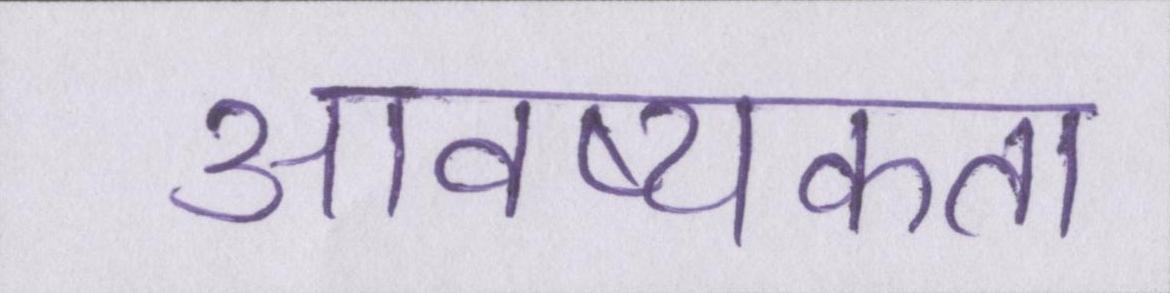 आवष्यकता